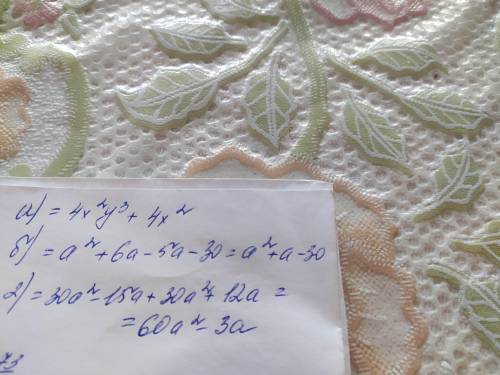 а) = 4x²y³ + 4x²
б) = a² + 6a - 5a - 30 = a² + a - 30
г) = 30a² - 15a + 30a² + 12a =
= 60a² - 3a
73